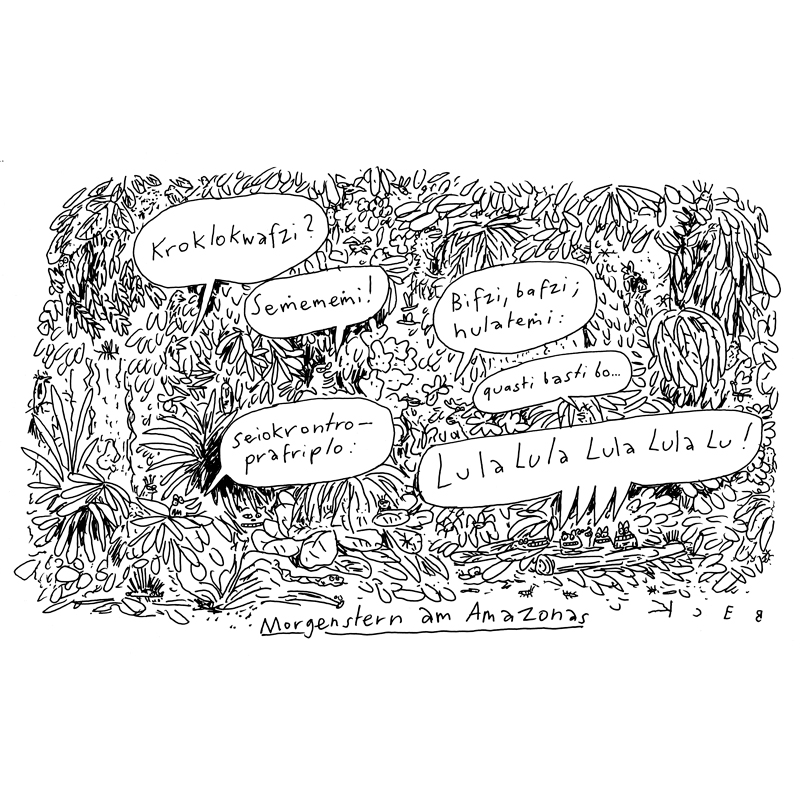 Kroklokwafzi?
Semememi!
Seiokrontro—
prafriplo:
Bifzi, bafzi;
hulatemi:
quasti basti bo...
Lula Lula Lula Lula Lu!
Morgenstern am Amazonas